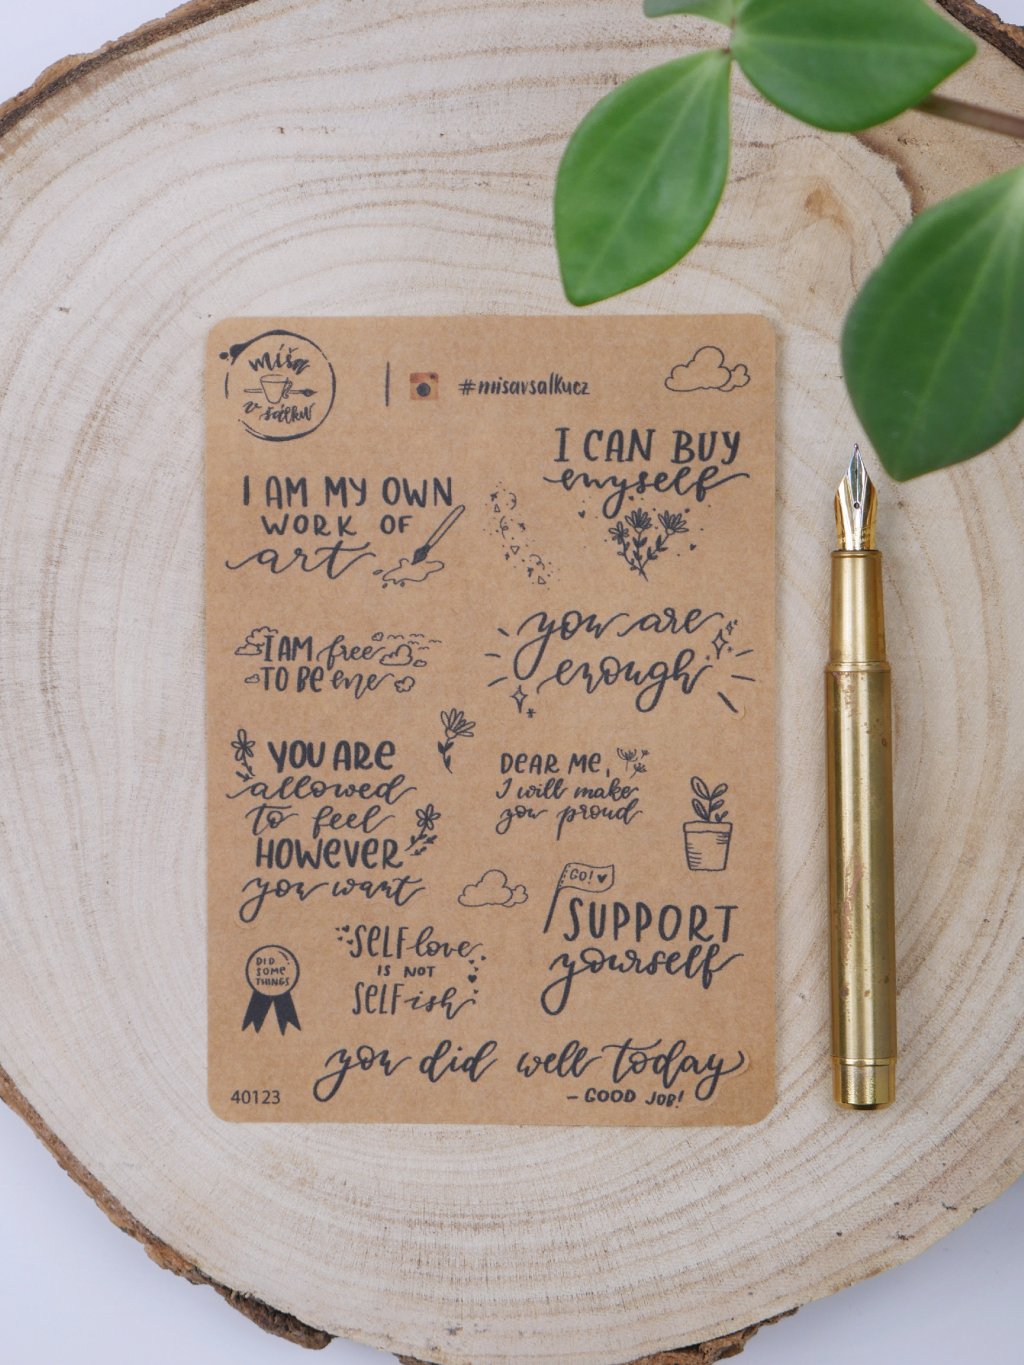 míša
v šálku
#misavsalkucz
I CAN BUY
myself
I AM MY OWN
WORK OF
art
you are
enough
I AM free
TO BE me
YOU ARE
allowed
to feel
HOWEVER
you want
DEAR ME,
I will make
you proud
GO!
SUPPORT
yourself
SELF love
IS NOT
SELFish
DID
SOME
THINGS
you did well today
- GOOD JOB!
40123